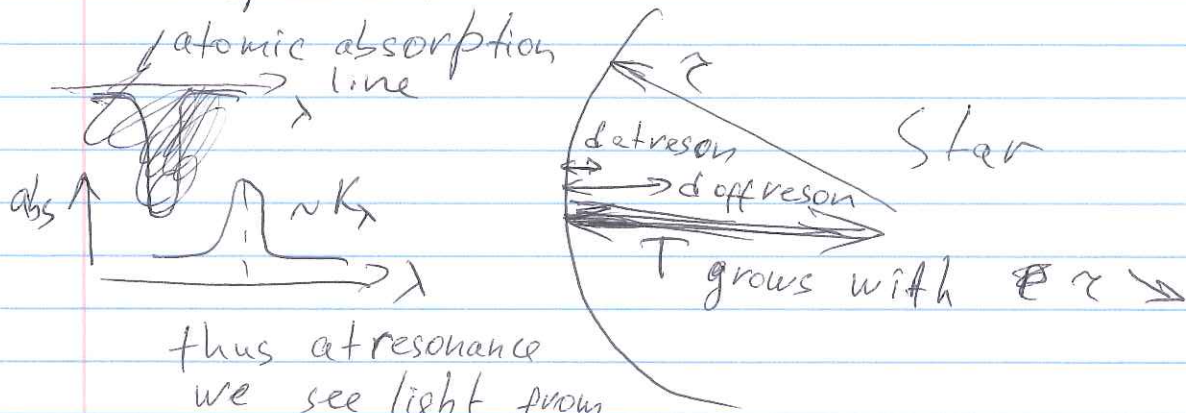 atomic absorption
line
λ
abs
~ K_λ
λ
thus at resonance
we see light from
r
Star
d at reson
d off reson
T grows with r ↘